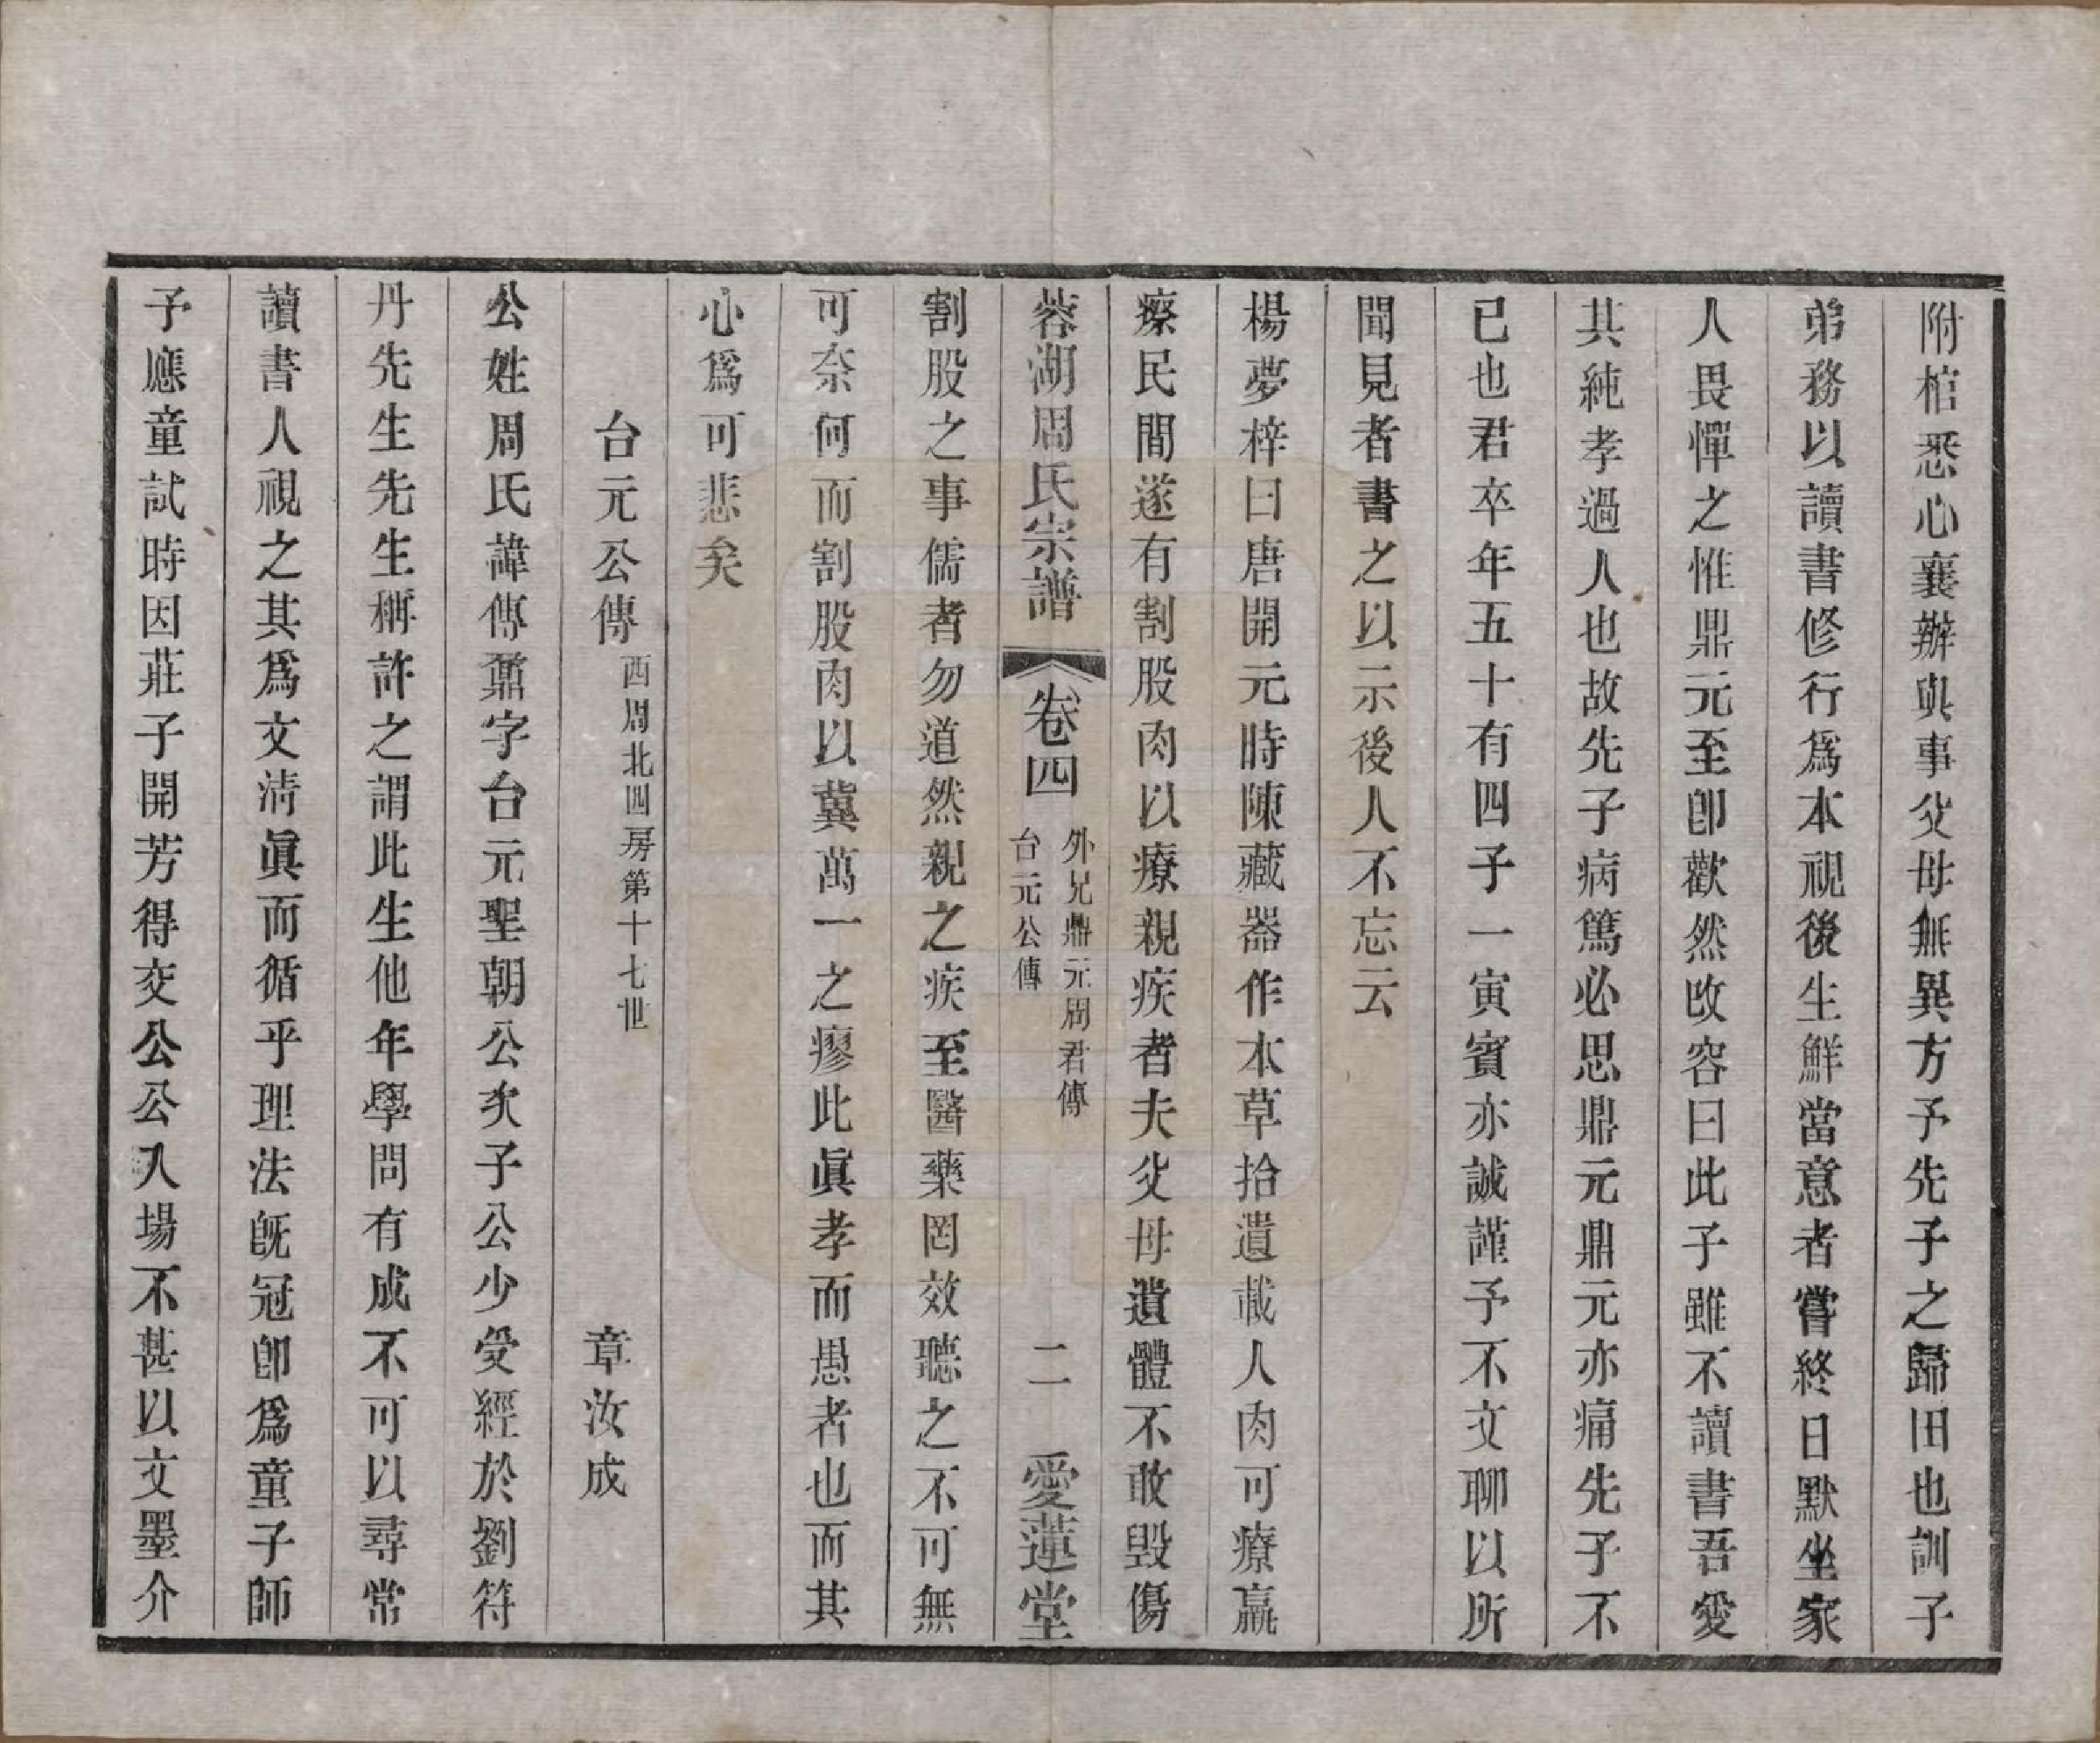 附棺悉心襄辦與事父母無異方予先子之歸田也訓子
弟務以讀書修行爲本視後生鮮當意者嘗終日默坐家
人畏憚之惟鼎元至卽歡然改容曰此子雖不讀書吾愛
其純孝過人也故先子病篤必思鼎元鼎元亦痛先子不
已也君卒年五十有四子一寅賓亦誠謹予不文聊以所
聞見者書之以示後人不忘云
楊夢梓曰唐開元時陳藏器作本草拾遺載人肉可療羸
瘵民間遂有割股肉以療親疾者夫父母遺體不敢毀傷
蓉湖周氏宗譜 卷四 外兄鼎元周君傳 台元公傳 二 愛蓮堂
割股之事儒者勿道然親之疾至醫藥罔效聽之不可無
可奈何而割股肉以冀萬一之瘳此眞孝而愚者也而其
心爲可悲矣
台元公傳 西周北四房第十七世 章汝成
公姓周氏諱傳鼐字台元聖朝公次子公少受經於劉符
丹先生先生稱許之謂此生他年學問有成不可以尋常
讀書人視之其爲文淸眞而循乎理法旣冠卽爲童子師
予應童試時因莊子開芳得交公公入場不甚以文墨介